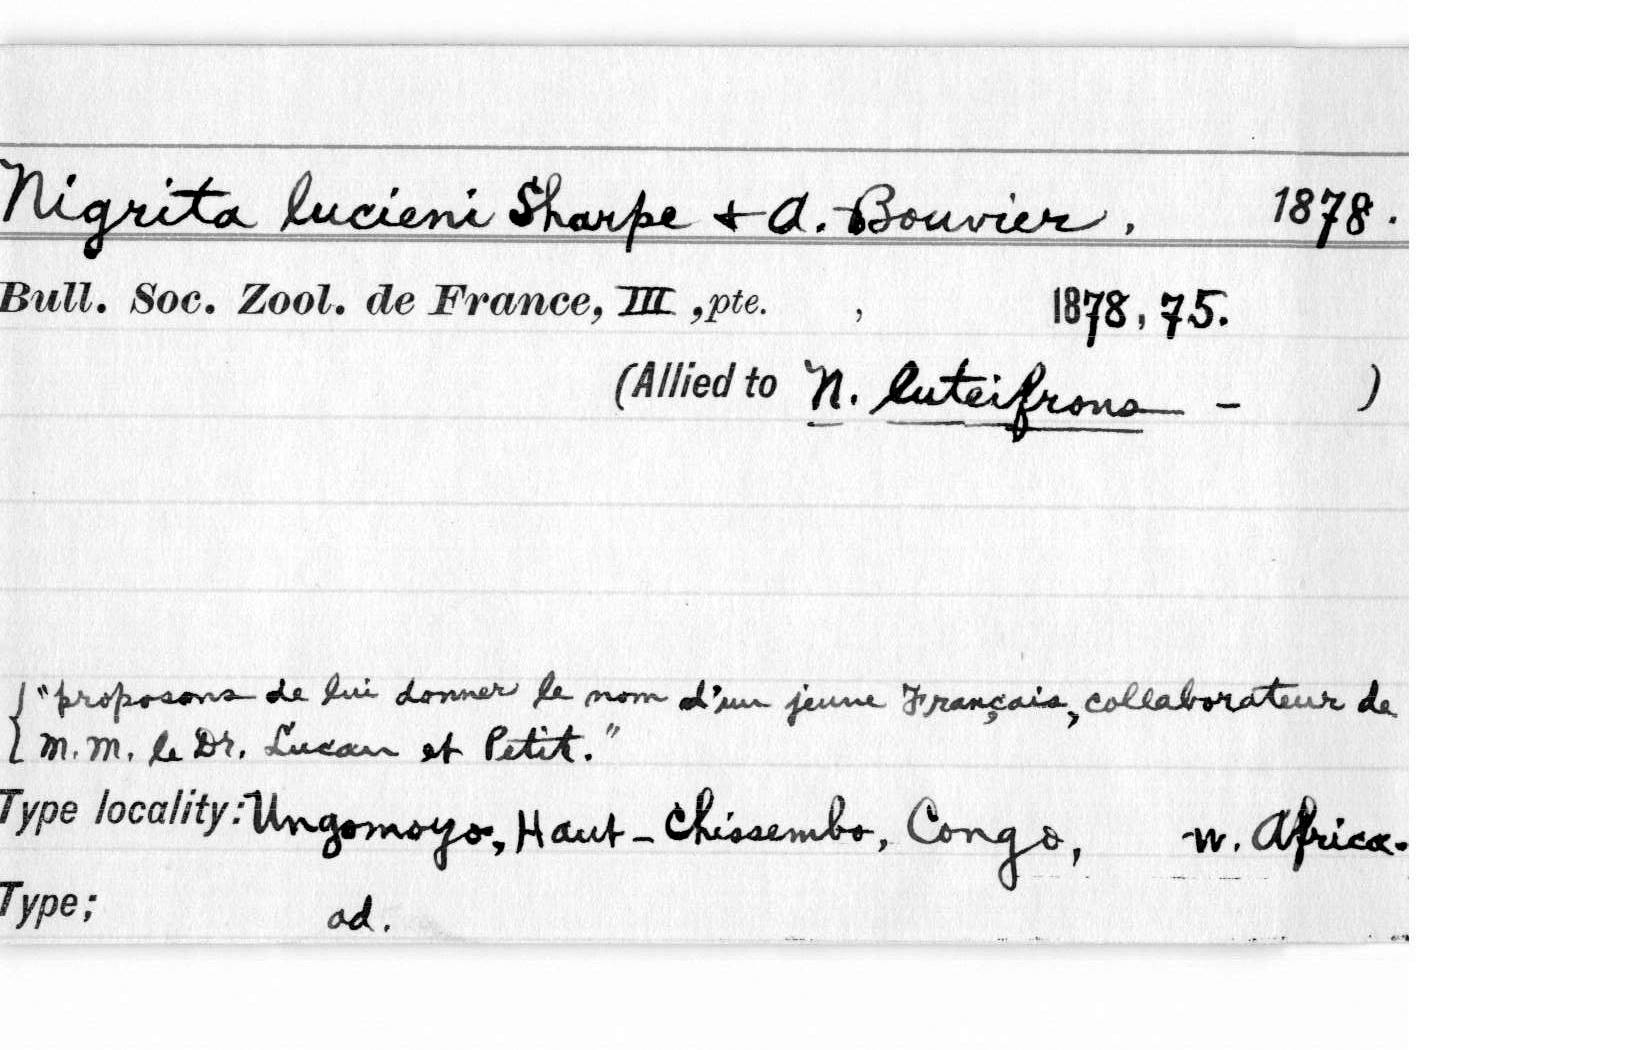 Nigrita lucieni Sharpe + A. Bouvier, 1878.
Bull. Soc. Zool. de France, III, pte. , 1878, 75.
(Allied to N. luteifrons - )
{"proposons de lui donner le nom d'un jeune Français, collaborateur de
M. M. le Dr. Lucan et Petit."
Type locality: Ungomoyo, Haut-Chissembo, Congo, W. Africa.
Type; ad.